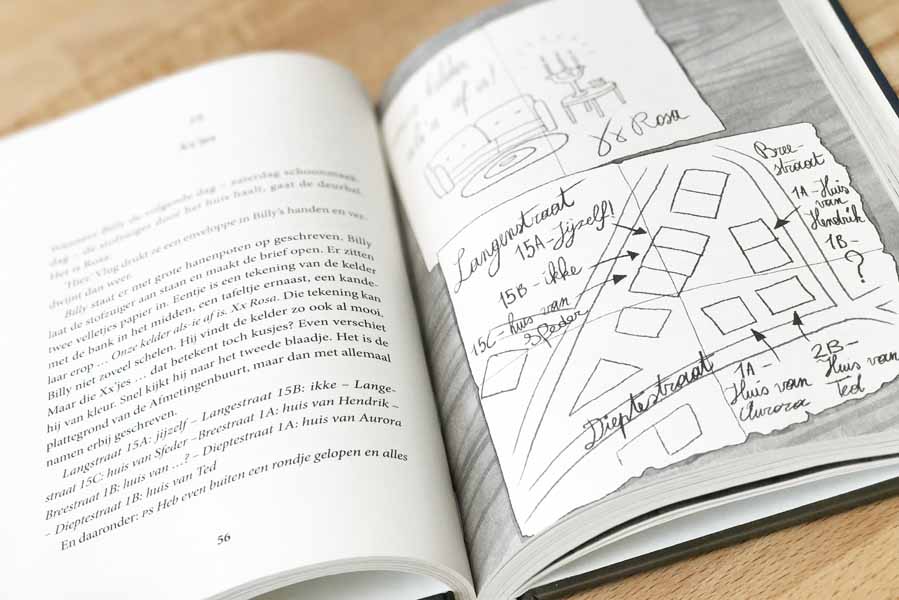 Xx'jes
Wanneer Billy de volgende dag – zaterdag schoonmaak-
dag – de stofzuiger door het huis haalt, gaat de deurbel.
Het is Rosa.
'Hier.' Vlug drukt ze een enveloppe in Billy's handen en ver-
dwijnt dan weer.
Billy staat er met grote hanenpoten op geschreven. Billy
laat de stofzuiger aan staan en maakt de brief open. Er zitten
twee velletjes papier in. Eentje is een tekening van de kelder
met de bank in het midden, een tafeltje ernaast, een kande-
laar erop ... Onze kelder als-ie af is. Xx Rosa. Die tekening kan
Billy niet zoveel schelen. Hij vindt de kelder zo ook al mooi.
Maar die Xx'jes ... dat betekent toch kusjes? Even verschiet
hij van kleur. Snel kijkt hij naar het tweede blaadje. Het is de
plattegrond van de Afmetingenbuurt, maar dan met allemaal
namen erbij geschreven.
Langstraat 15A: jijzelf – Langestraat 15B: ikke – Lange-
straat 15C: huis van Sfeder –Breestraat 1A: huis van Hendrik –
Breestraat 1B: huis van ...? – Dieptestraat 1A: huis van Aurora
– Dieptestraat 1B: huis van Ted
En daaronder: PS Heb even buiten een rondje gelopen en alles
56
kelder
als ie af is!
Xx Rosa
Langenstraat
15A-Jijzelf!
15B-ikke
15C-huis van
Sfeder
Bree-
straat
1A-Huis
van
Hendrik
1B-
?
Dieptestraat
1A-
Huis van
Aurora
2B-
Huis van
Ted